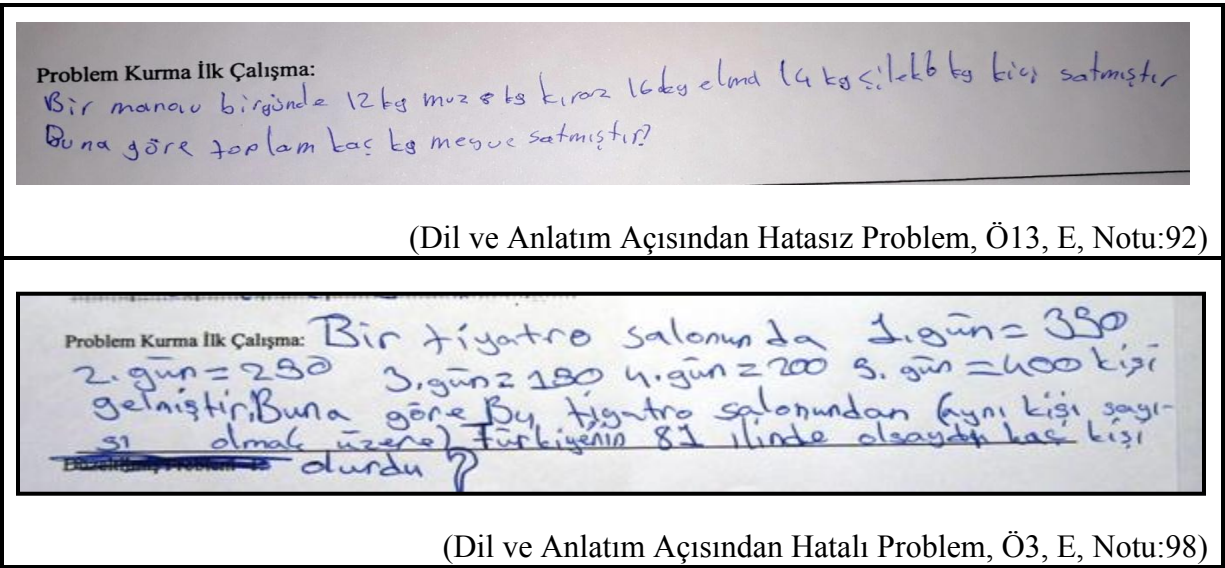 Problem Kurma İlk Çalışma:
Bir manav birgünde 12 kg muz 8 kg kiraz 16 kg elma 14 kg çilek 6 kg kivi satmıştır
Buna göre toplam kaç kg meyve satmıştır?
(Dil ve Anlatım Açısından Hatasız Problem, Ö13, E, Notu:92)
Problem Kurma İlk Çalışma: Bir tiyatro salonunda 1.gün=
2.gün= 3.gün= 4.gün=200 5. gün=400 kişi
gelmiştir. Buna göre Bu tiyatro salonundan (aynı kişi sayı-
sı olmak üzere) Türkiyenin 81 ilinde olsaydı kaç kişi
olurdu?
(Dil ve Anlatım Açısından Hatalı Problem, Ö3, E, Notu:98)